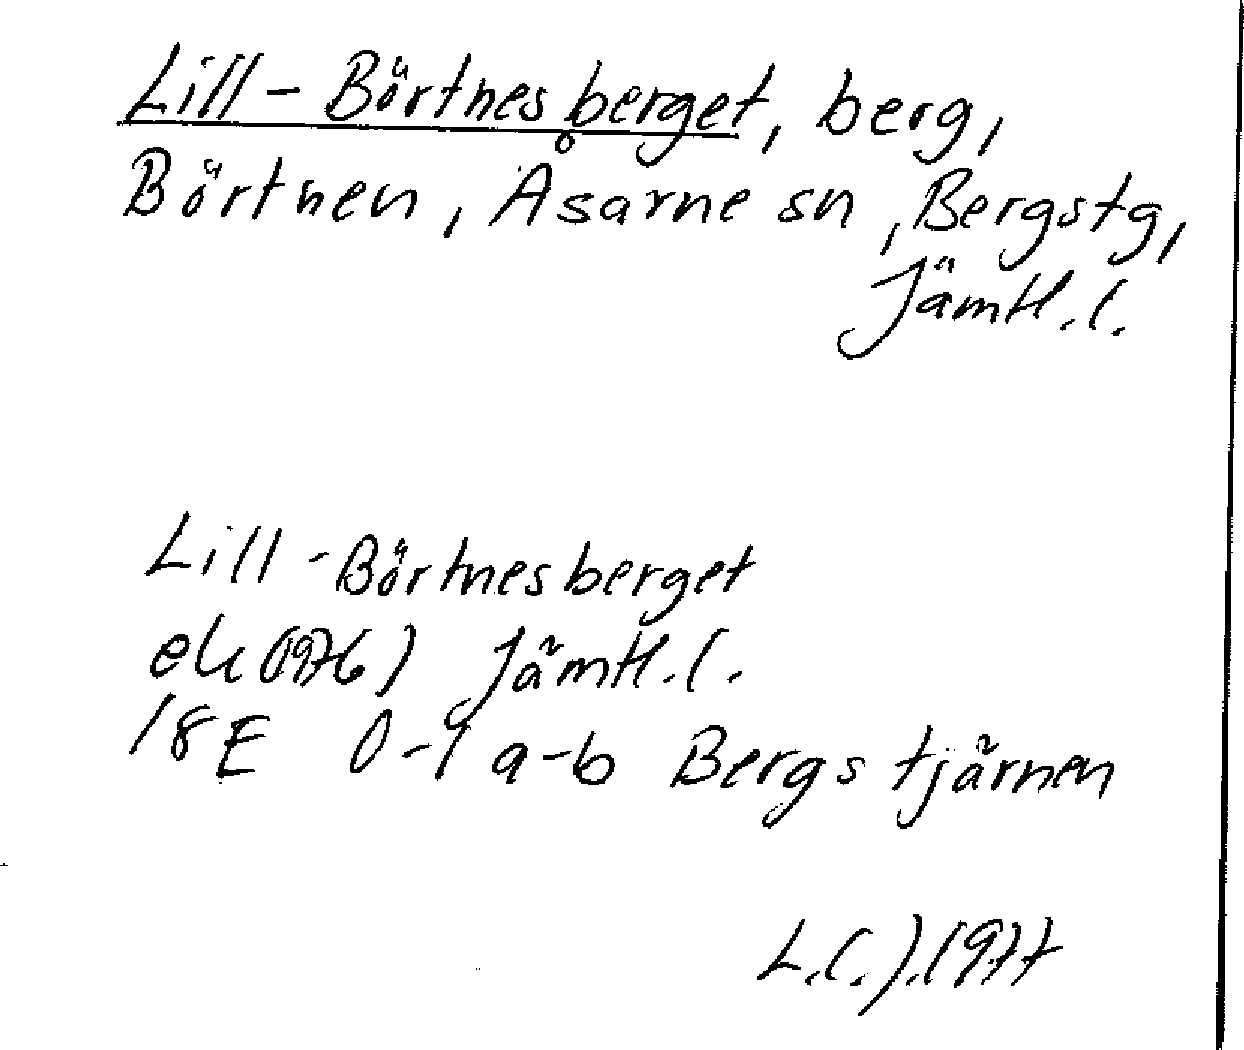 Lill-Börtnesberget, berg,
Börtnen, Åsarne sn, Bergs tg,
Jämtl. l.
Lill-Börtnesberget
ek (1976) Jämtl. l.
18E 0-1 a-b Bergstjärnen
1977